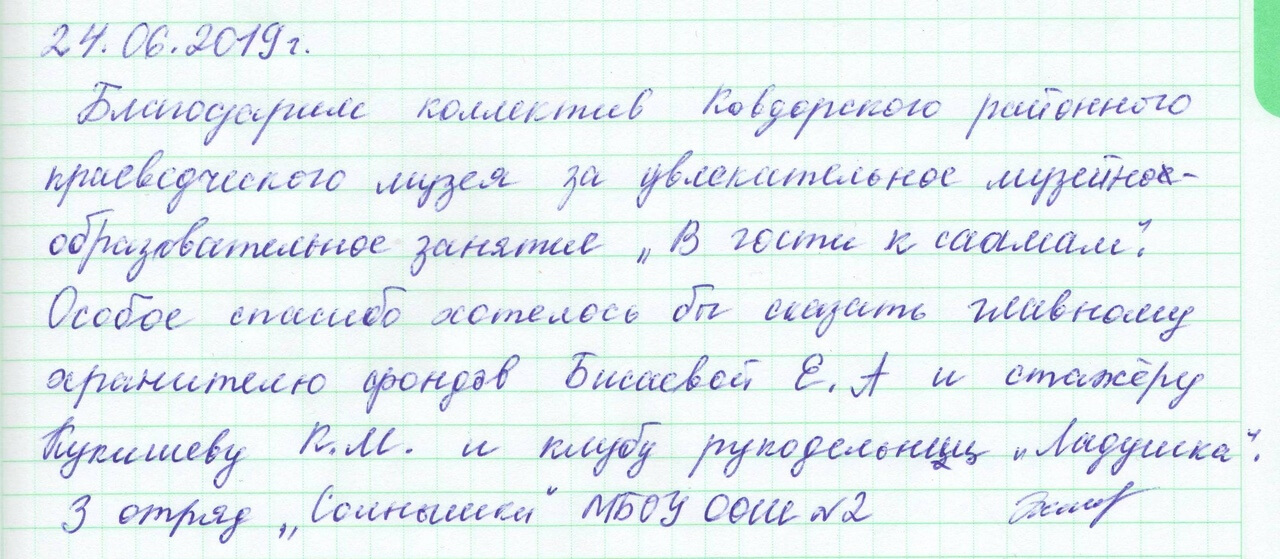 24.06.2019г.
Благодарим коллектив Ковдорского районного
краеведческого музея за увлекательное музейно-
образовательное занятие „В гости к саамам".
Особое спасибо хотелось бы сказать главному
хранителю фондов Бисаевой Е.А и стажёру
Кукишеву К.М. и клубу рукодельниц „Ладушка".
3 отряд „Солнышки" МБОУ ООШ №2